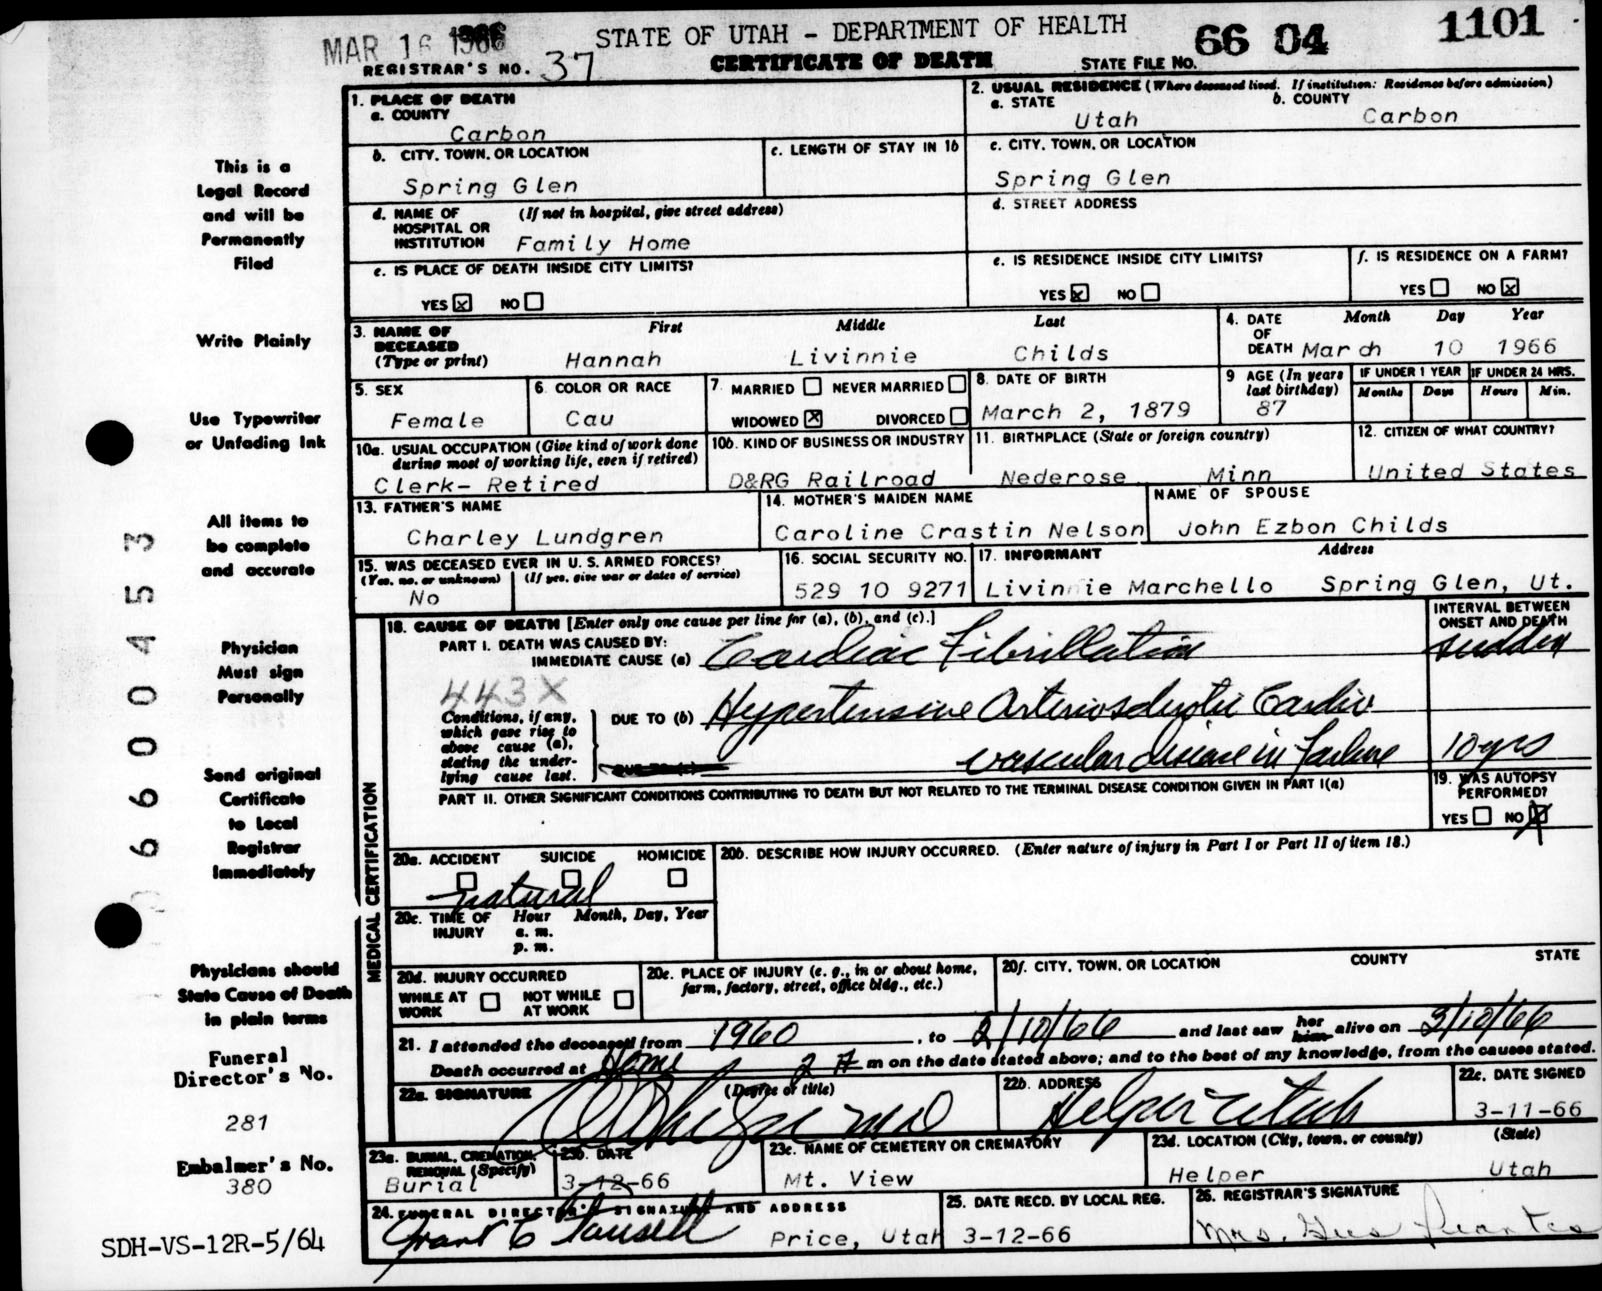 MAR 16 1966
STATE OF UTAH - DEPARTMENT OF HEALTH
66 04 1101
REGISTRAR'S NO. 37
CERTIFICATE OF DEATH
STATE FILE NO.
1. PLACE OF DEATH
a. COUNTY
Carbon
2. USUAL RESIDENCE (Where deceased lived. If institution: Residence before admission)
a. STATE b. COUNTY
Utah Carbon
b. CITY, TOWN, OR LOCATION
Spring Glen
c. LENGTH OF STAY IN 1b
c. CITY, TOWN, OR LOCATION
Spring Glen
d. NAME OF (If not in hospital, give street address)
HOSPITAL OR
INSTITUTION Family Home
d. STREET ADDRESS
e. IS PLACE OF DEATH INSIDE CITY LIMITS?
YES x NO
e. IS RESIDENCE INSIDE CITY LIMITS?
YES x NO
f. IS RESIDENCE ON A FARM?
YES NO x
3. NAME OF First Middle Last
DECEASED
(Type or print) Hannah Livinnie Childs
4. DATE Month Day Year
OF
DEATH March 10 1966
5. SEX
Female
6. COLOR OR RACE
Cau
7. MARRIED NEVER MARRIED
WIDOWED x DIVORCED
8. DATE OF BIRTH
March 2, 1879
9 AGE (In years
last birthday)
87
IF UNDER 1 YEAR IF UNDER 24 HRS.
Months Days Hours Min.
10a. USUAL OCCUPATION (Give kind of work done
during most of working life, even if retired)
Clerk- Retired
10b. KIND OF BUSINESS OR INDUSTRY
D&RG Railroad
11. BIRTHPLACE (State or foreign country)
Nederose Minn
12. CITIZEN OF WHAT COUNTRY?
United States
13. FATHER'S NAME
Charley Lundgren
14. MOTHER'S MAIDEN NAME
Caroline Crastin Nelson
NAME OF SPOUSE
John Ezbon Childs
15. WAS DECEASED EVER IN U. S. ARMED FORCES?
(Yes, no, or unknown) (If yes, give war or dates of service)
No
16. SOCIAL SECURITY NO.
529 10 9271
17. INFORMANT Address
Livinnie Marchello Spring Glen, Ut.
18. CAUSE OF DEATH [Enter only one cause per line for (a), (b), and (c).]
PART I. DEATH WAS CAUSED BY:
IMMEDIATE CAUSE (a) Cardiac Fibrillation
INTERVAL BETWEEN
ONSET AND DEATH
sudden
443X
Conditions, if any,
which gave rise to
above cause (a),
stating the under-
lying cause last.
DUE TO (b) Hypertensive Arteriosclerotic Cardio
DUE TO (c) vascular disease in Failure 10 yrs
PART II. OTHER SIGNIFICANT CONDITIONS CONTRIBUTING TO DEATH BUT NOT RELATED TO THE TERMINAL DISEASE CONDITION GIVEN IN PART I(a)
19. WAS AUTOPSY
PERFORMED?
YES NO X
20a. ACCIDENT SUICIDE HOMICIDE
natural
20b. DESCRIBE HOW INJURY OCCURRED. (Enter nature of injury in Part I or Part II of item 18.)
20c. TIME OF Hour Month, Day, Year
INJURY a. m.
p. m.
20d. INJURY OCCURRED
WHILE AT NOT WHILE
WORK AT WORK
20e. PLACE OF INJURY (e. g., in or about home,
farm, factory, street, office bldg., etc.)
20f. CITY, TOWN, OR LOCATION COUNTY STATE
21. I attended the deceased from 1960, to 2/10/66 and last saw her him alive on 3/10/66
Death occurred at Home 2 A m on the date stated above; and to the best of my knowledge, from the causes stated.
22a. SIGNATURE (Degree or title)
MD
22b. ADDRESS
Helper Utah
22c. DATE SIGNED
3-11-66
23a. BURIAL, CREMATION,
REMOVAL (Specify)
Burial
23b. DATE
3-12-66
23c. NAME OF CEMETERY OR CREMATORY
Mt. View
23d. LOCATION (City, town, or county) (State)
Helper Utah
24. FUNERAL DIRECTOR'S SIGNATURE AND ADDRESS
Grant C Fausett Price, Utah
25. DATE RECD. BY LOCAL REG.
3-12-66
26. REGISTRAR'S SIGNATURE
Mrs.
MEDICAL CERTIFICATION
This is a
Legal Record
and will be
Permanently
Filed
Write Plainly
Use Typewriter
or Unfading Ink
All items to
be complete
and accurate
Physician
Must sign
Personally
Send original
Certificate
to Local
Registrar
Immediately
Physicians should
State Cause of Death
in plain terms
Funeral
Director's No.
281
Embalmer's No.
380
SDH-VS-12R-5/64
6600453